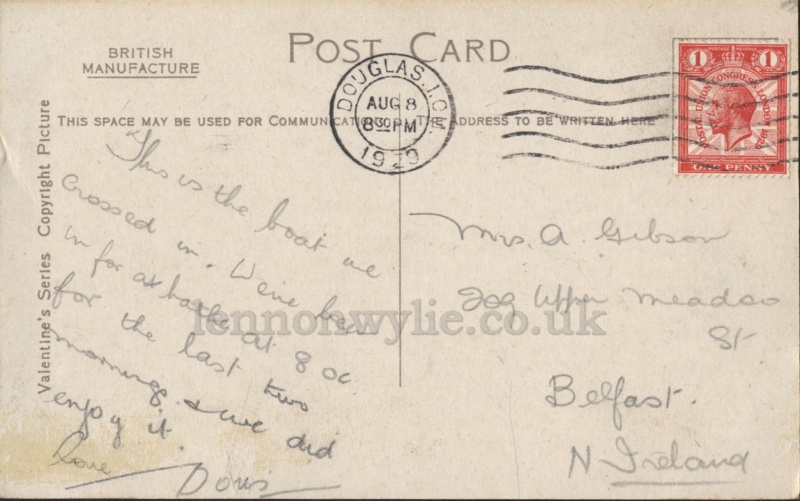 BRITISH
MANUFACTURE
POST CARD
DOUGLAS. I.O.M.
AUG 8
8 30 PM
1929
1 POSTAGE REVENUE 1
POSTAL UNION CONGRESS LONDON 1929
ONE PENNY
THIS SPACE MAY BE USED FOR COMMUNICATION
THE ADDRESS TO BE WRITTEN HERE
Valentine's Series Copyright Picture
This is the boat we
crossed in. We've been
in for a bathe at 8 oc
for the last two
mornings & we did
enjoy it.
love Doris
Mrs. A. Gibson
209 Upper Meadow
St
Belfast.
N Ireland
lennonwylie.co.uk